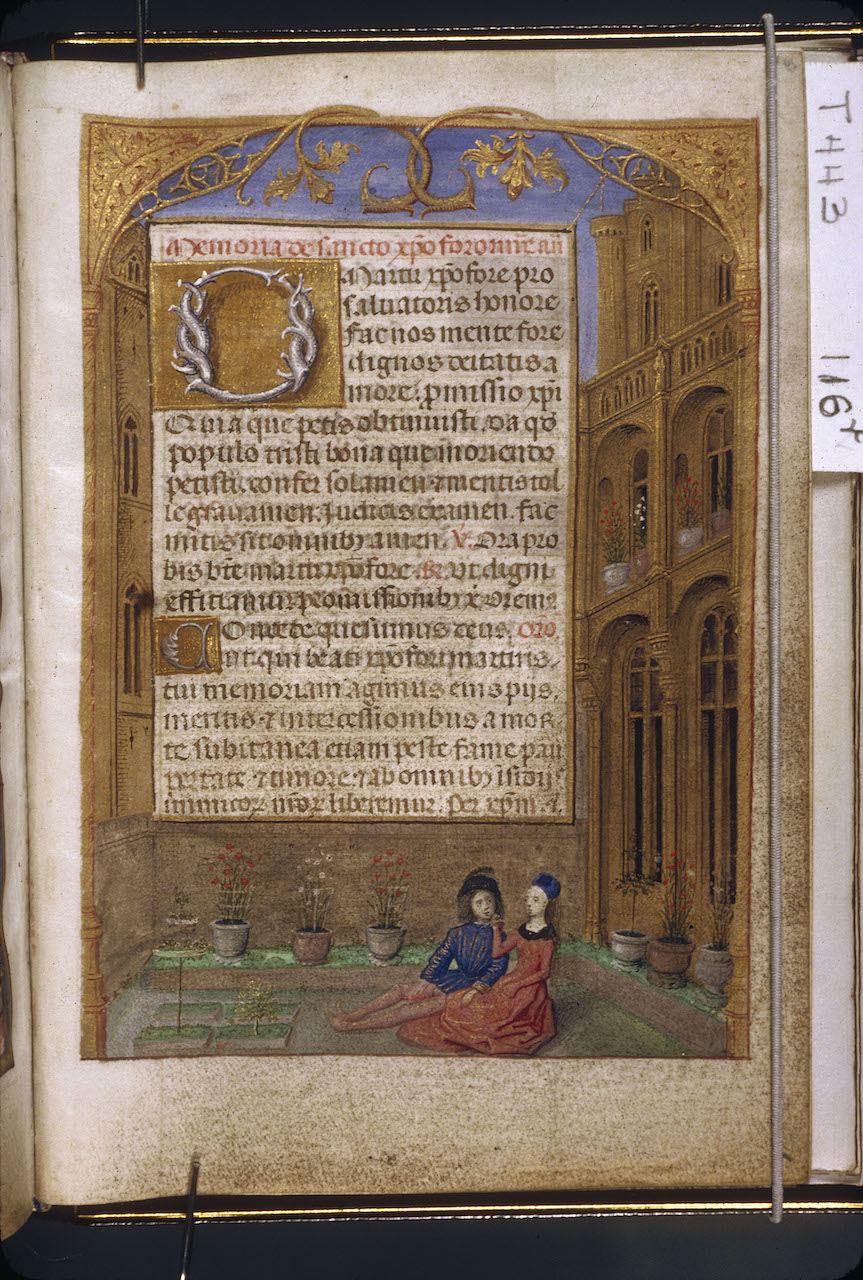 Memoria de sancto xpoforo mr̄e an̄
O Martir xpofore pro
saluatoris honore
fac nos mente fore
dignos deitatis a
more. ꝓmissio xpi
Quia que petis obtinuisti. da qs̄
populo tristi bona que moriendo
petisti. confer solamen ⁊ mentis tol
le grauamen. Judicis examen. fac
mitis sit omnibꝰ amen. V. Ora pro
bis bt̄e martir xpofore. R. Ut digni
efficiamur promissionibꝰ x̄. Oremꝰ
Concede quesumus deus. Oro
ut qui beati xpofori martiris.
tui memoriam agimus eius pijs.
meritis ⁊ intercessionibus a mor
te subitanea etiam peste fame pau
pertate ⁊ timore ⁊ ab omnibꝰ isidijs
inimicoꝝ nr̄oꝝ liberemur. Per xp̄m. ⁊.
T443
116r